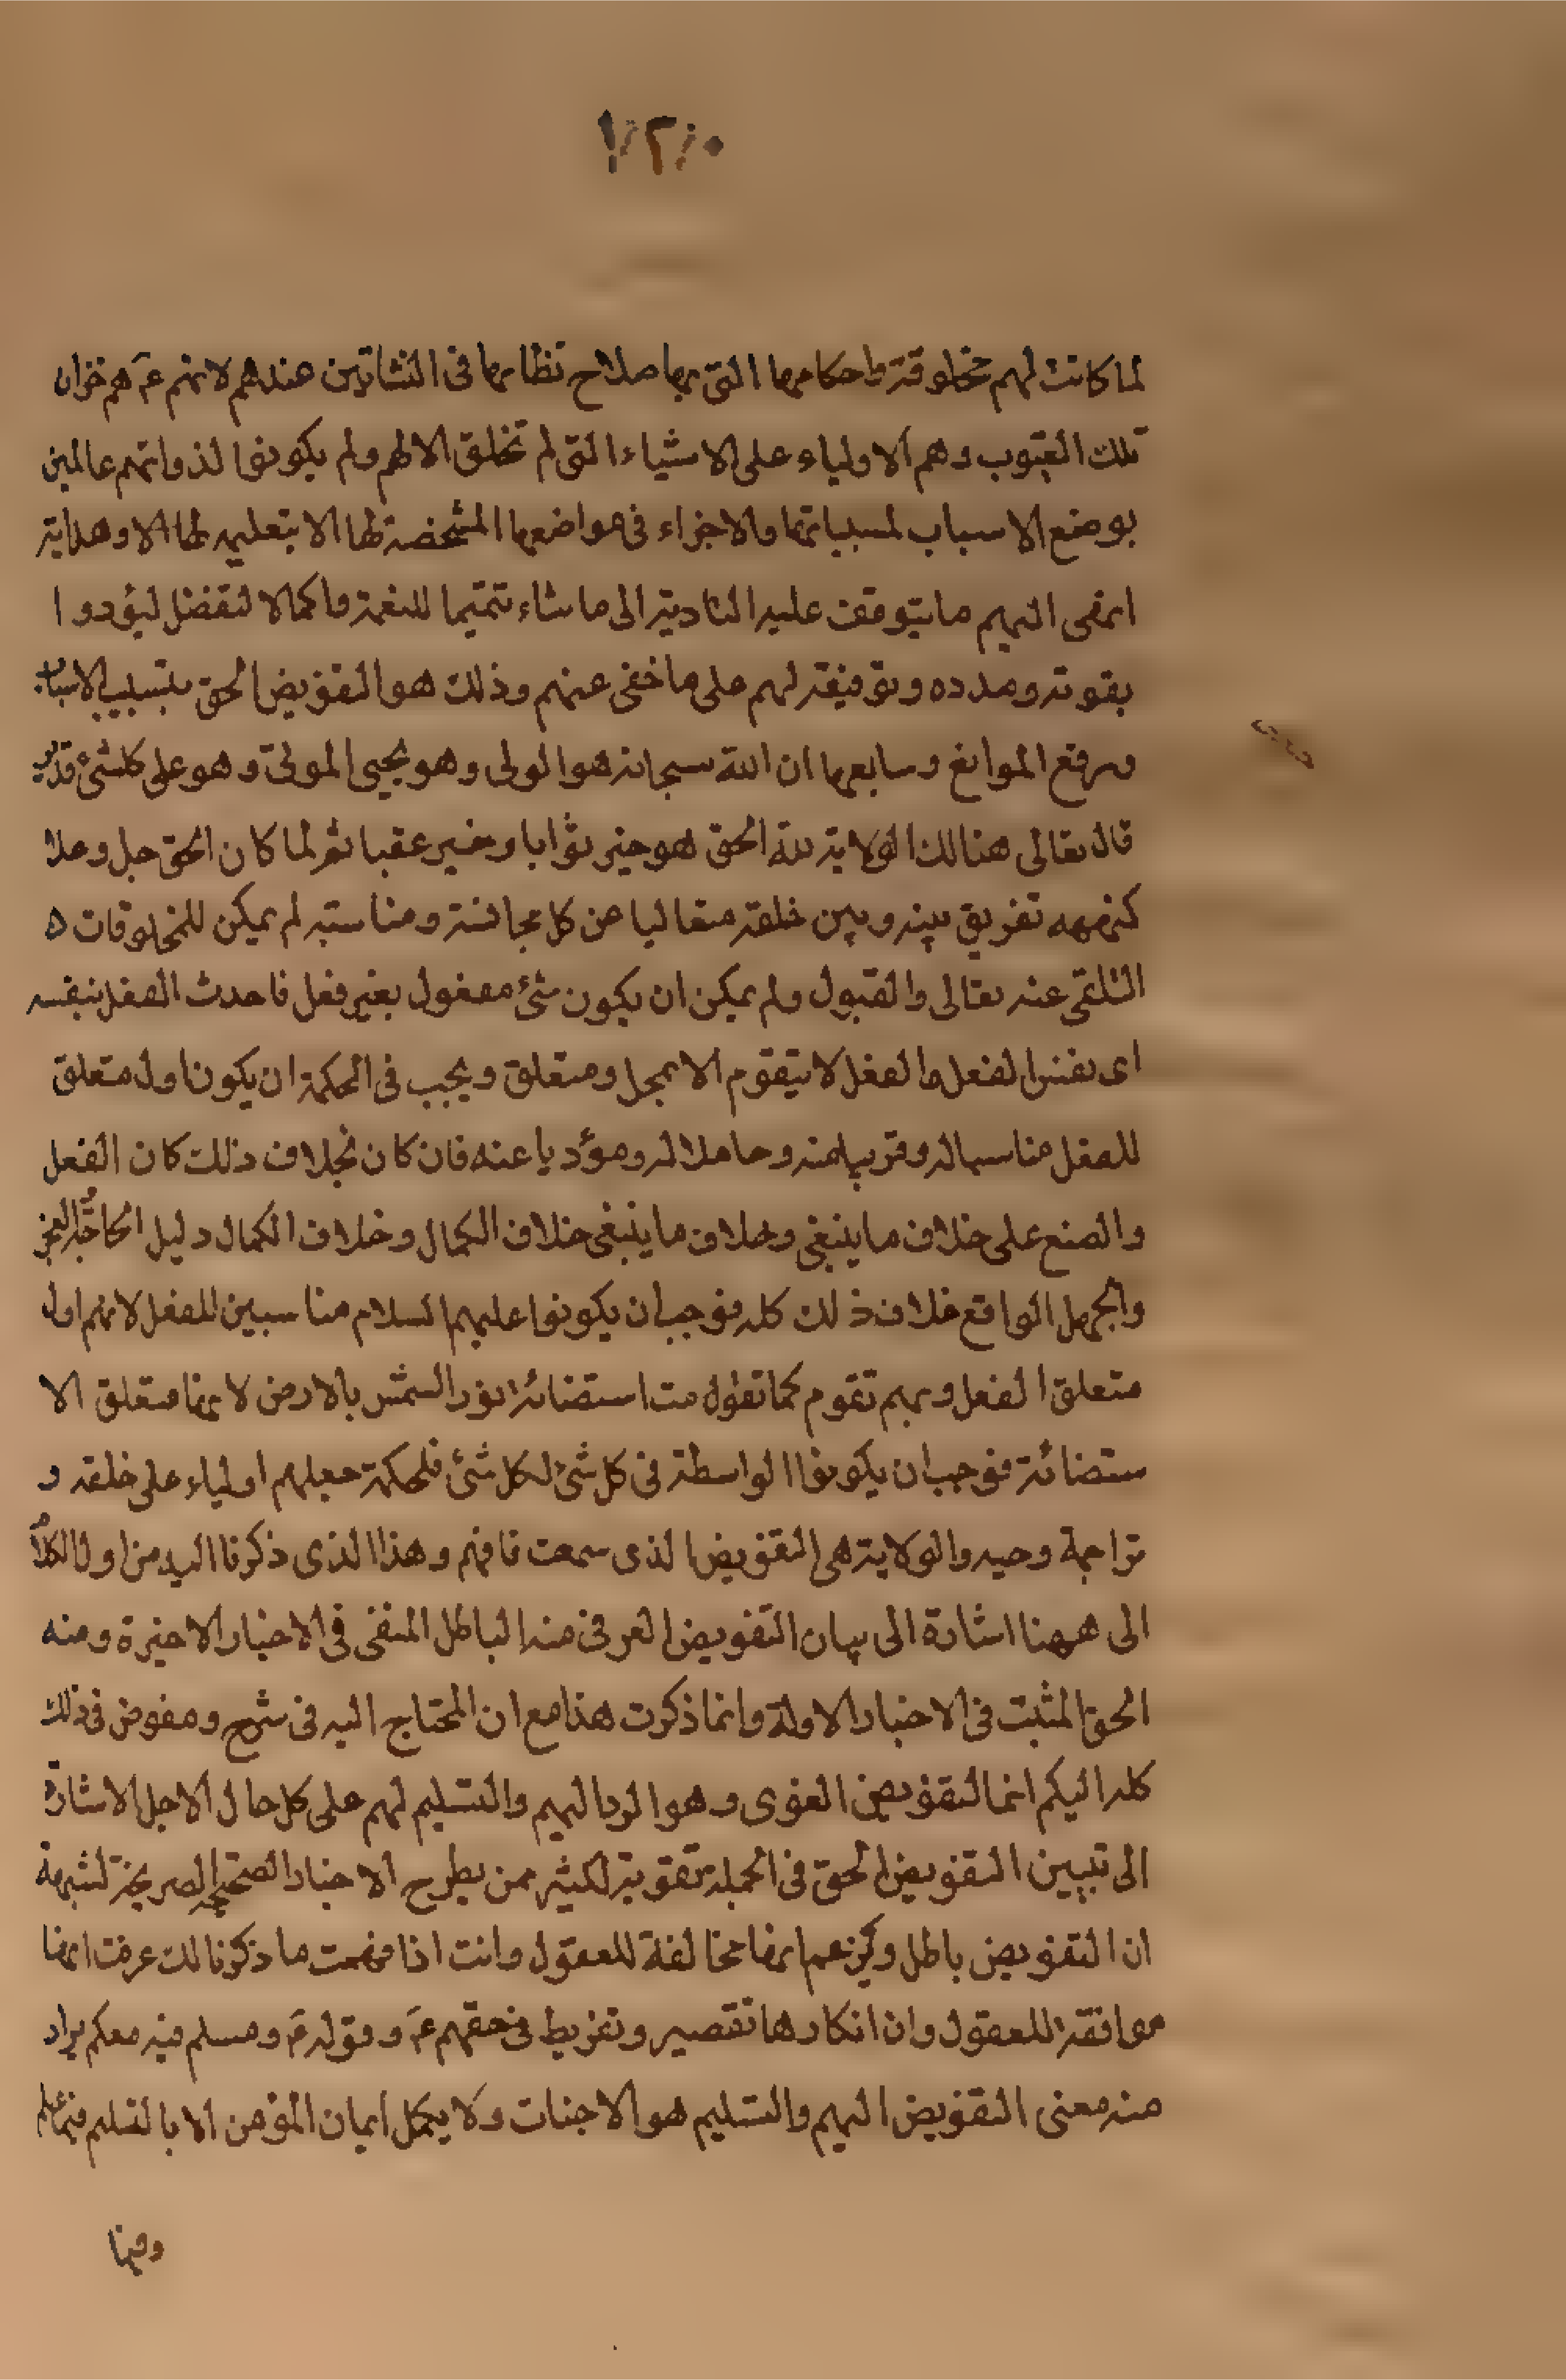 ١٢٠
لما كانت لهم مخلوقة واحكامها التى بها صلاح نظامها فى النشاتين عندهم لانهم عم هم خزان
تلك الغيوب وهم الاولياء على الاشياء التى لم تخلق الا لهم ولم يكونوا لذواتهم عالمين
بوضع الاسباب لمسبباتها والاجزاء فى مواضعها المشخصة لها الا بتعليمه لها الا وهداية
انهى اليهم ما يتوقف عليه التادية الى ما شاء تتميما للنعمة واكمالا لتفضل ليؤدوا
بقوته ومدده وتوفيقه لهم على ما خفى عنهم وذلك هو التفويض الحق بتسبيب الاسباب
ورفع الموانع وسابعها ان الله سبحانه هو الولى وهو يحيى الموتى وهو على كلشئ قدير
قال تعالى هنالك الولاية لله الحق هو خير ثوابا وخير عقبا ثم لما كان الحق جل وعلا
كنهه تفريق بينه وبين خلقه متعاليا عن كل مجانسة ومناسبة لم يمكن للمخلوقات ه
التلقى عنه تعالى والقبول ولم يمكن ان يكون شئ مفعول بغير فعل فاحدث الفعل بنفسه
اى بنفس الفعل والفعل لا يتقوم الا بمحل ومتعلق ويجب فى الحكمة ان يكون اول متعلق
للفعل مناسبا له وقريبا منه وحاملا له ومؤديا عنه فان كان بخلاف ذلك كان الفعل
والصنع على خلاف ما ينبغى وخلاف ما ينبغى خلاف الكمال وخلاف الكمال دليل الحاجة والعجز
والجهل الواقع خلاف ذلك كله فوجب ان يكونوا عليهم السلام مناسبين للفعل لانهم اول
متعلق الفعل وبهم تقوم كما تقول مت استضائة نور الشمس بالارض لانها متعلق الا
ستضائة فوجب ان يكونوا الواسطة فى كل شئ لكل شئ فلحكمة جعلهم اولياء على خلقه و
تراجمة وحيه والولاية هى التفويض الذى سمعت فافهم وهذا الذى ذكرنا اليه من اول الكلام
الى ههنا اشارة الى بيان التفويض العرفى منه الباطل المنفى فى الاخبار الاخيرة ومنه
الحق المثبت فى الاخبار الاولة وانما ذكرت هذا مع ان المحتاج اليه فى شرح ومفوض فى ذلك
كله اليكم انما التفويض اللغوى وهو الرد اليهم والتسليم لهم على كل حال الاجل الاشارة
الى تبيين التفويض الحق فى الجملة تقوية لكثير ممن يطرح الاخبار الصحيحة الصريحة لشبهة
ان التفويض باطل ويزعم انها مخالفة للعقول وانت اذا فهمت ما ذكرنا لك عرفت انها
موافقة للعقول وان انكارها تقصير وتفريط فى حقهم عم وقوله ع ومسلم فيه معكم يراد
منه معنى التفويض اليهم والتسليم هو الاخبات ولا يكمل ايمان المؤمن الا بالتسليم فيما علم
وفيما